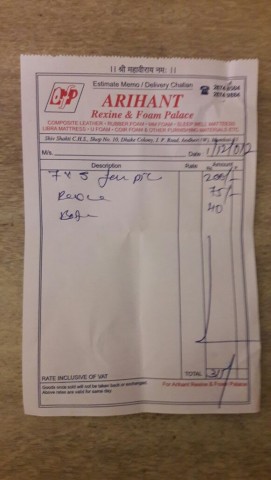 ।। श्री महावीराय नमः ।।
Estimate Memo / Delivery Challan
ARIHANT
Rexine & Foam Palace
COMPOSITE LEATHER • RUBBER FOAM • MM FOAM • SLEEP WELL MATTRESS
LIBRA MATTRESS • U FOAM • COIR FOAM & OTHER FURNISHING MATERIALS ETC.
Shiv Shakti C.H.S., Shop No. 10, Dhake Colony, J. P. Road, Andheri (W),
M/s. Date
Description Rate Amount
7 x 5 200/-
Rexine 75/-
40
RATE INCLUSIVE OF VAT TOTAL
Goods once sold will not be taken back or exchanged.
Above rates are valid for same day.
For Arihant Rexine & Foam Palace